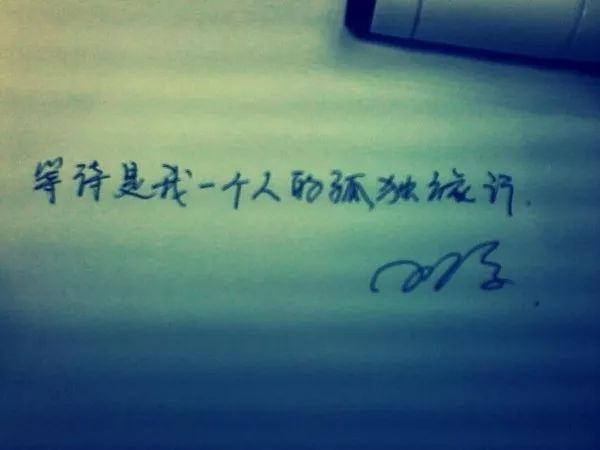 等待是我一个人的孤独旅行.